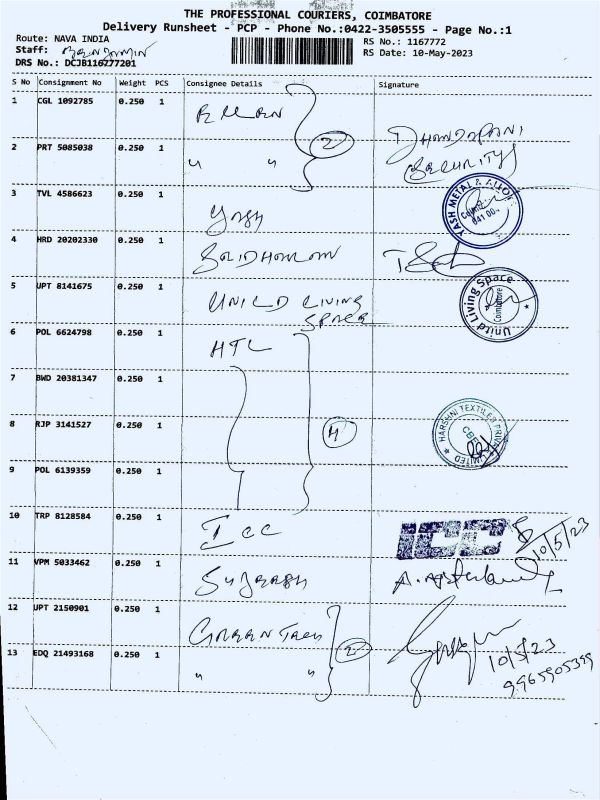 THE PROFESSIONAL COURIERS, COIMBATORE
Delivery Runsheet - PCP - Phone No.:0422-3505555 - Page No.:1
Route: NAVA INDIA
RS No.: 1167772
Staff:
RS Date: 10-May-2023
DRS No.: DCJB116777201
S No Consignment No Weight PCS Consignee Details Signature
1 CGL 1092785 0.250 1
2 PRT 5085038 0.250 1 " " 2 SECURITY
3 TVL 4586623 0.250 1 YASH YASH METAL & ALLOY
4 HRD 20202330 0.250 1
5 UPT 8141675 0.250 1 UNITED LIVING SPACE United Living Space Coimbatore
6 POL 6624798 0.250 1 HTL
7 BWD 20381347 0.250 1
8 RJP 3141527 0.250 1 4 HARSHNI TEXTILES PRIVATE LIMITED CBE
9 POL 6139359 0.250 1
10 TRP 8128584 0.250 1 ICC ICC 10/5/23
11 VPM 5033462 0.250 1
12 UPT 2150901 0.250 1 GREEN TREE 2
13 EDQ 21493168 0.250 1 " " 10/5/23
9965905399